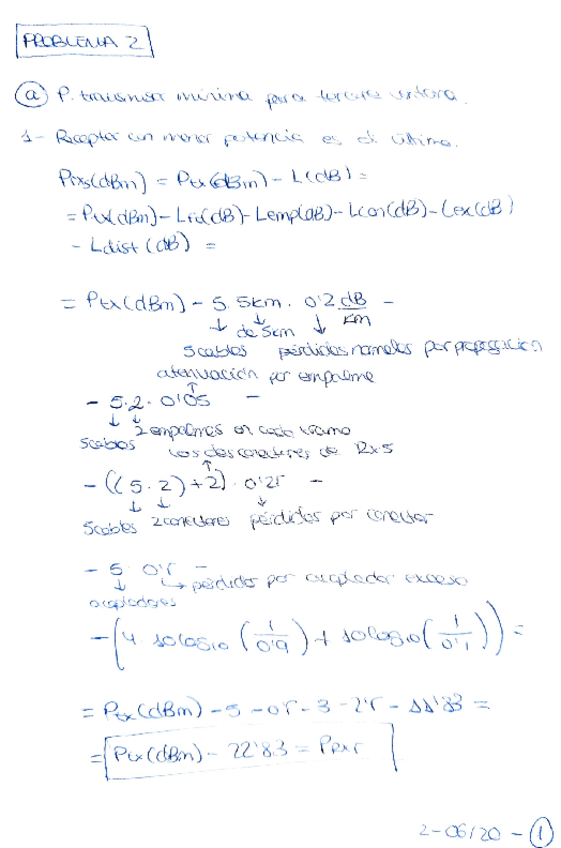 PROBLEMA 2
a P. transmisor mínima para tercera ventana.
1- Receptor con menor potencia es el último.
Prx5(dBm) = Ptx(dBm) - L(dB) =
= Ptx(dBm) - Lfo(dB) - Lemp(dB) - Lcon(dB) - Lex(dB)
- Ldist (dB) =
= Ptx(dBm) - 5. 5km. 0'2 dB/km -
↓ ↓ ↓
de 5km
5 cables pérdidas normales por propagación
atenuación por empalme
- 5.2. 0'05 -
↓ ↓
2 empalmes en cada tramo
5 cables los dos conectores de Rx5
- ((5.2)+2). 0'25 -
↓ ↓ ↓
5 cables 2 conectores pérdidas por conector
- 5. 0'5 -
↓ ↳ pérdidas por acoplador exceso
acopladores
- (4. 10log10 (1/0'9) + 10log10 (1/0'1)) =
= Ptx(dBm) - 5 - 0'5 - 3 - 2'5 - 11'83 =
= Ptx(dBm) - 22'83 = Prx5
2-06/20 - 1